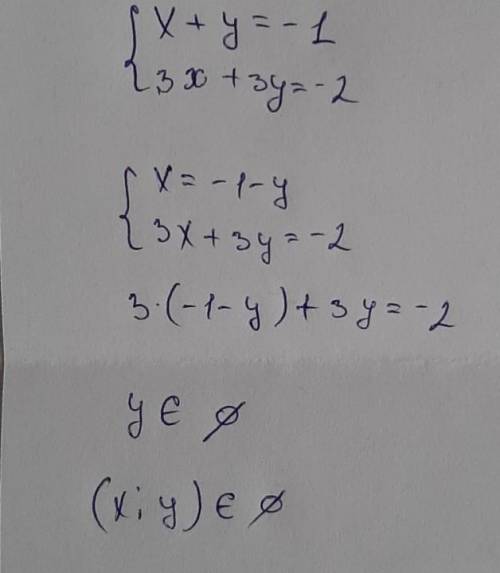 { x + y = -1
3x + 3y = -2
{ x = -1-y
3x + 3y = -2
3·(-1-y) + 3y = -2
y ∈ ∅
(x; y) ∈ ∅